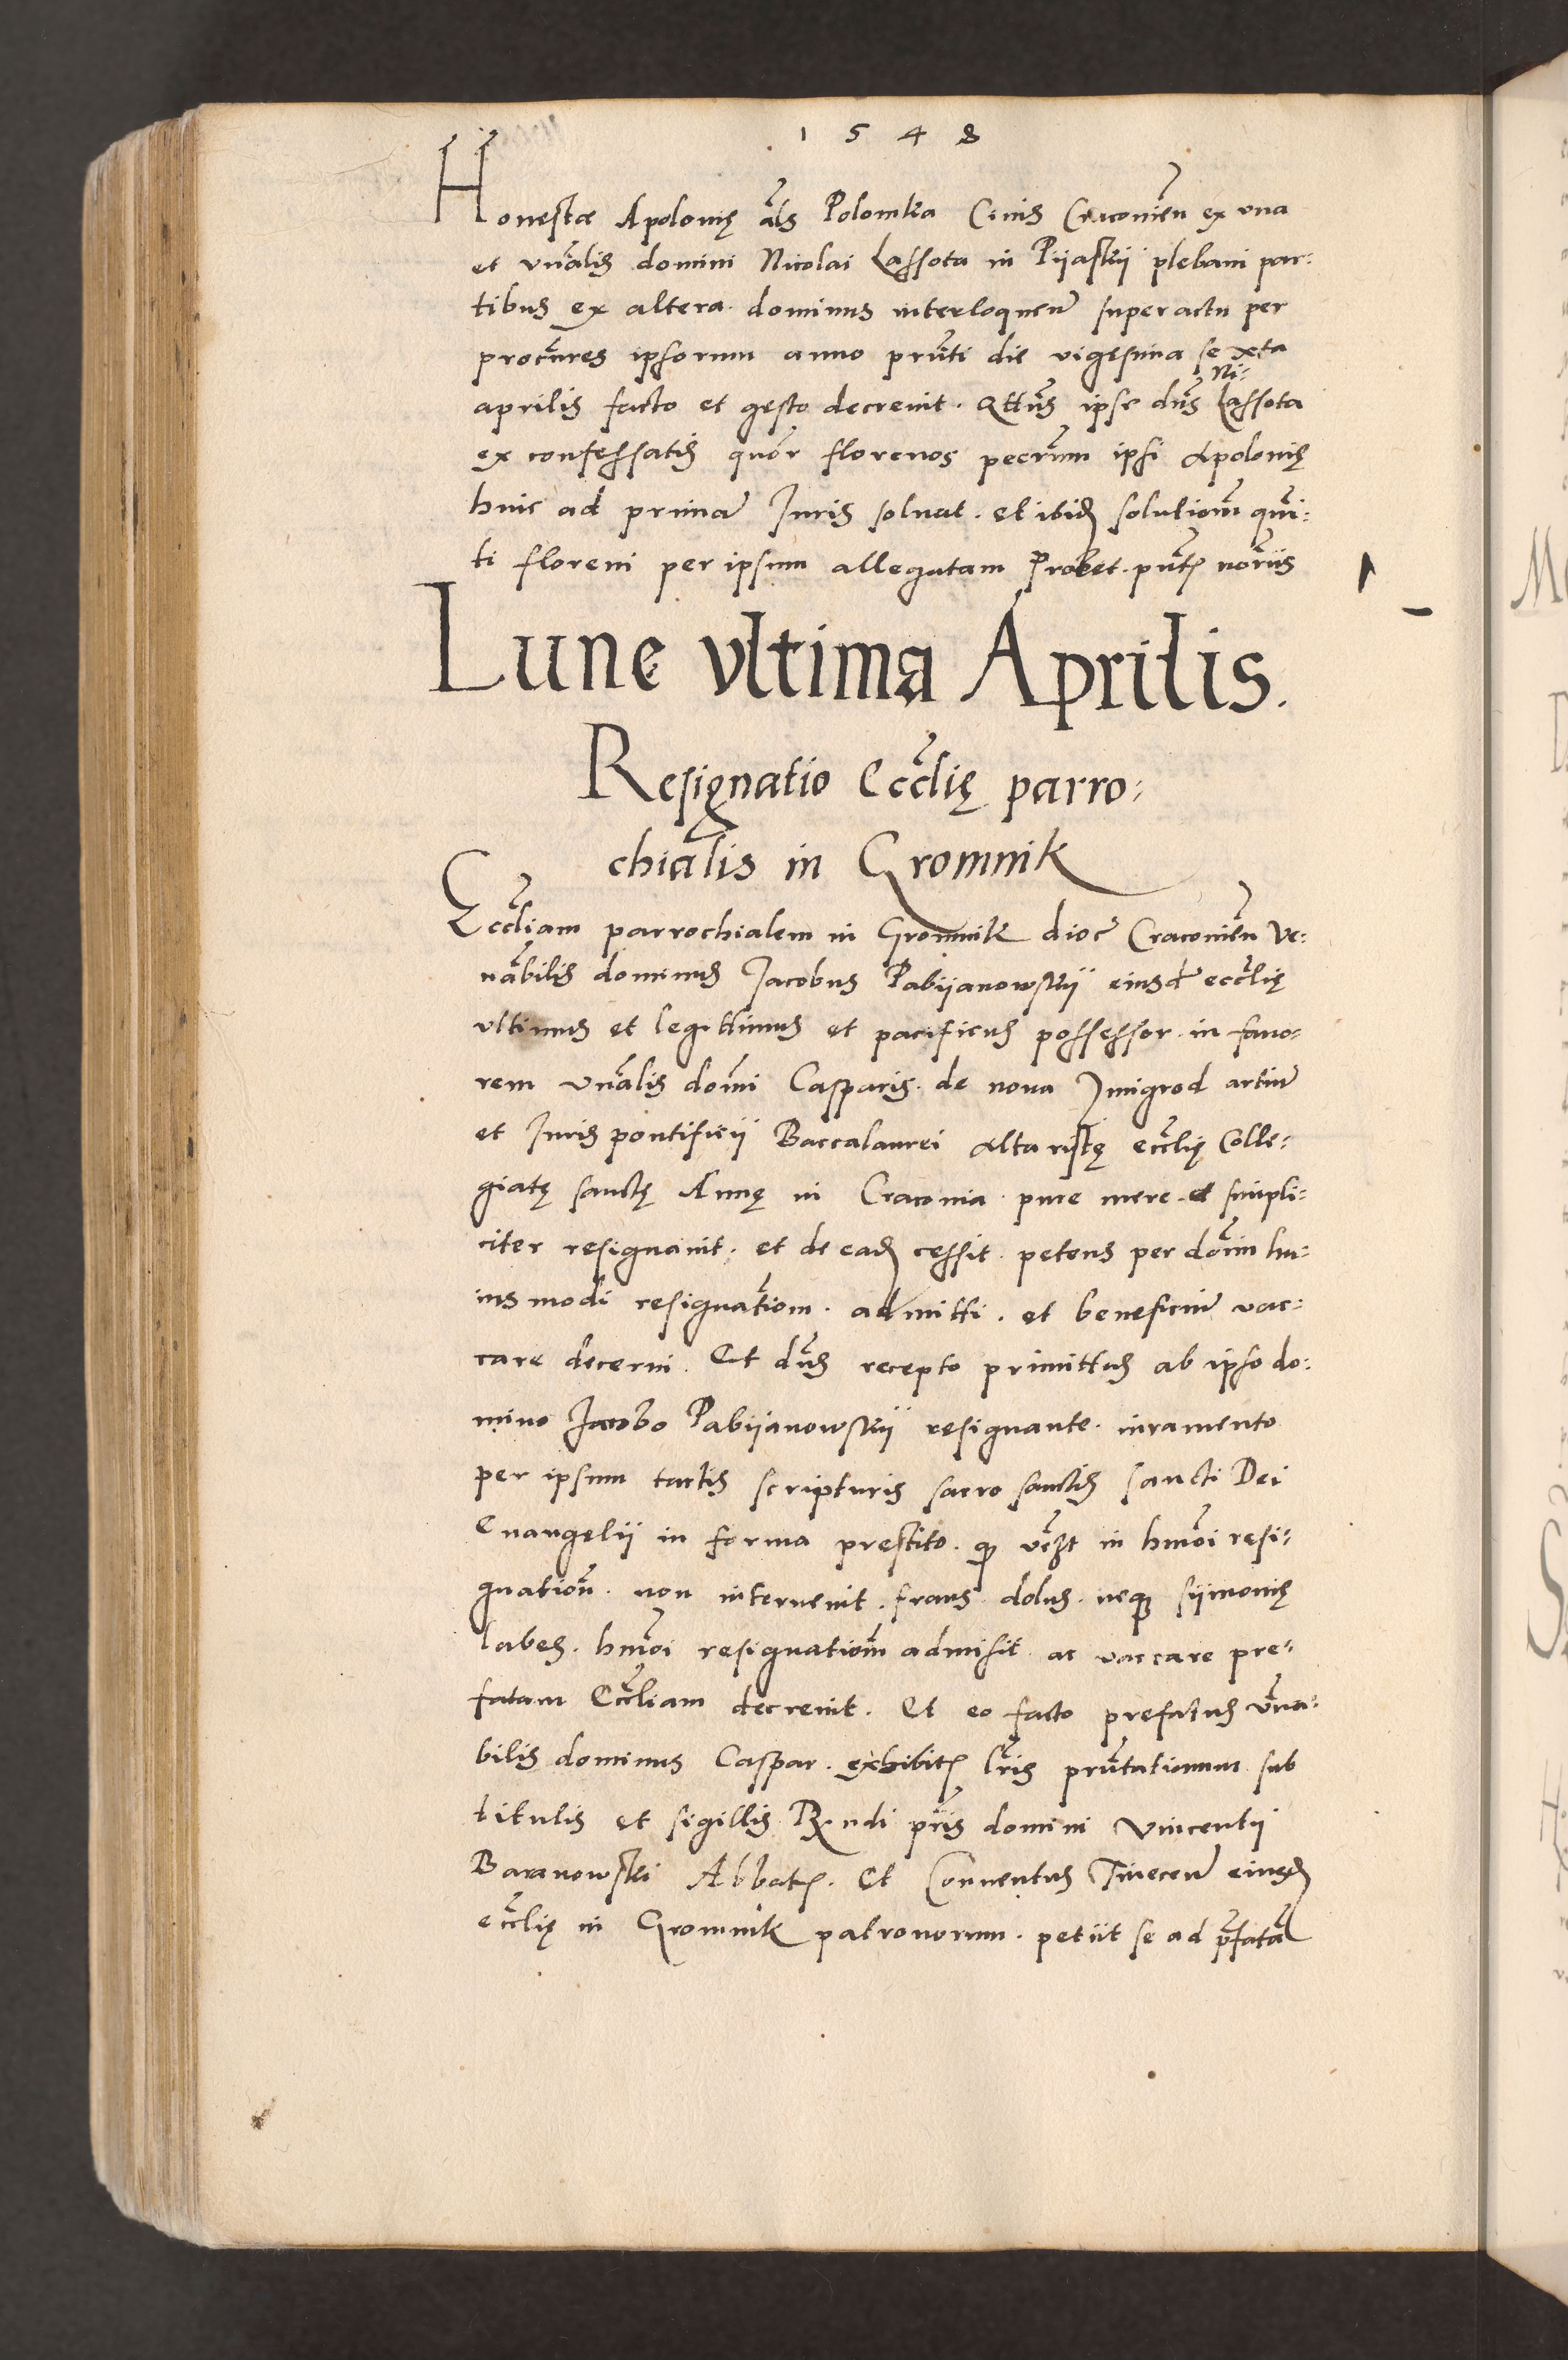 1 5 4 8
Honestæ Apolonię als Polomka Civis Cracovien ex una
et vnalis domini Nicolai Lassota in Piiaskii plebani par:
tibus ex altera. dominus interloquen super actu per
procures ipsorum anno prnti die vigesima sexta
aprilis facto et gesto decrevit. Qttus ipse dns Ni: Lassota
ex confessatis quor florenos pecnum ipsi Apolonię
hinc ad prima Juris solvat. et ibid solutionm quin:
ti floreni per ipsum allegatam Probet. pntr noriis
Lune vltima Aprilis.
Resignatio Eccclię parro:
chialis in Gromnik
Ecccliam parrochialem in Gromnik dioc Cracovien Ve:
nabilis dominus Jacobus Pabiianowskii eiusd eccclię
vltimus et legittimus et pacificus possessor. in favo:
rem vnalis domi Casparis. de nova Jmigrod artiu
et Juris pontificii Baccalaurei Altaristę ecclię Colle:
giatę sanctę Annę in Cracovia. pure mere. et simpli:
citer resignavit. et de ead cessit. petens per domm hu:
iusmodi resignationm. admitti. et beneficiu vac:
care decerni. Et dns recepto primittus ab ipso do:
mino Jacobo Pabiianowskii resignante. iuramento
per ipsum tactis scripturis sacro sanctis sancti Dei
Evangelii in forma prestito. q vczt in hmoi resi:
gnation. non intervenit. fraus. dolus. neq siimonię
labes. hmoi resignationm admisit. ac vaccare pre:
fatam Eccliam decrevit. Et eo facto prefatus vna:
bilis dominus Caspar. exhibitr lris prntationum sub
titulis et sigillis Rndi pris domini Vincentii
Baranowski Abbatr. Et Conventus Tinecen eiusd
ecclię in Gromnik patronorum. petiit se ad pfata